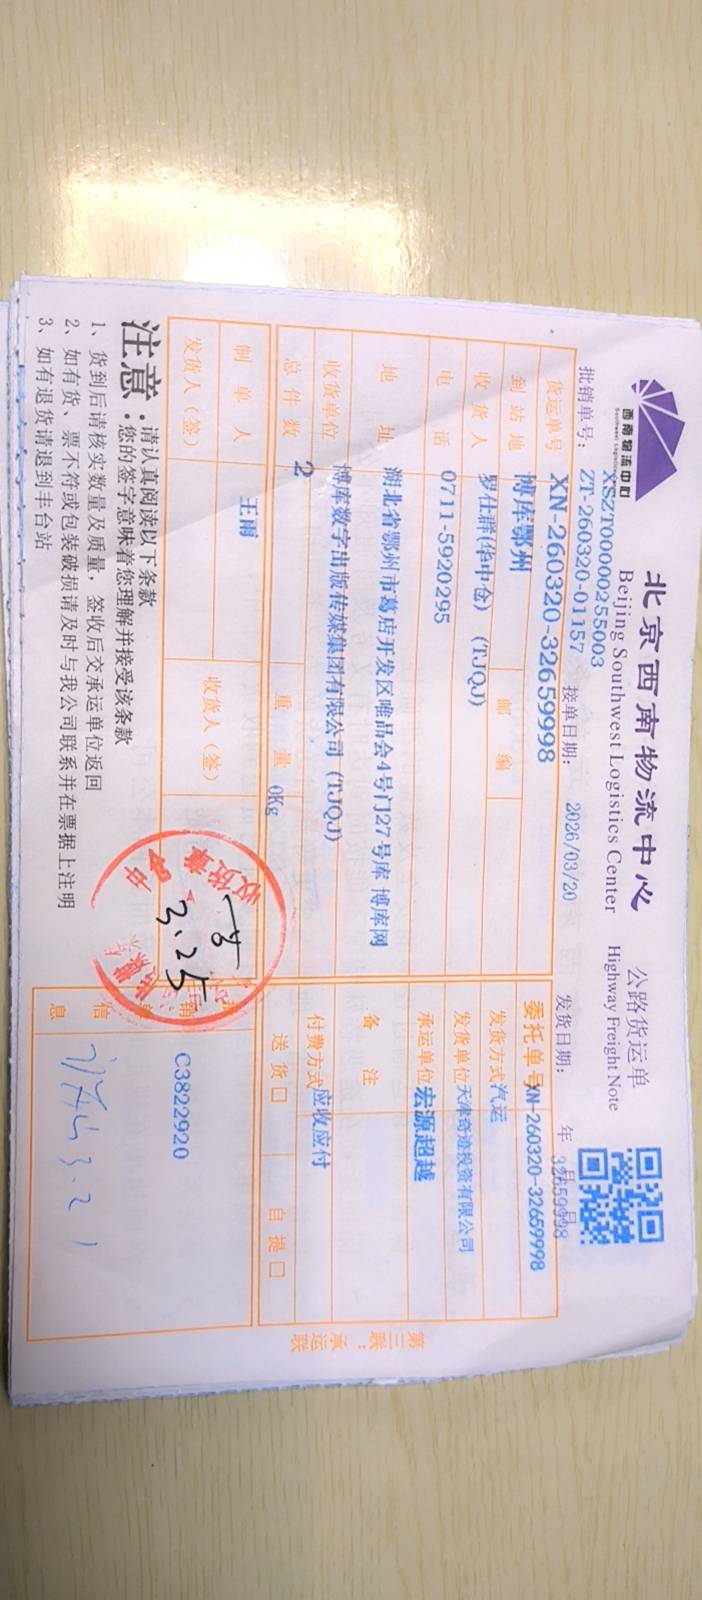 西南物流中心
Southwest Logistics
北京西南物流中心
Beijing Southwest Logistics Center
公路货运单
Highway Freight Note
批销单号：
XSZT00000255003
ZT-260320-01157
接单日期： 2026/03/20
发货日期： 年 月 日
32659998
货运单号 XN-260320-32659998
委托单号 XN-260320-32659998
到站地 博库鄂州 邮编
发货方式 汽运
收货人 罗仕群(华中仓) (TJQJ)
发货单位 天津奇迹投资有限公司
电话 0711-5920295
承运单位 宏源超越
地址 湖北省鄂州市葛店开发区唯品会4号门27号库 博库网
备注
收货单位 博库数字出版传媒集团有限公司 (TJQJ)
付费方式 应收应付
总件数 2 重量 0Kg
送货口 自提口
制单人 王雨
收货人（签）
发货人（签）
3.25
收货章
信息
C3822920
3.21
第三联：承运联
注意：
请认真阅读以下条款
您的签字意味着您理解并接受该条款
1、货到后请核实数量及质量，签收后交承运单位返回
2、如有货、票不符或包装破损请及时与我公司联系并在票据上注明
3、如有退货请退到丰台站